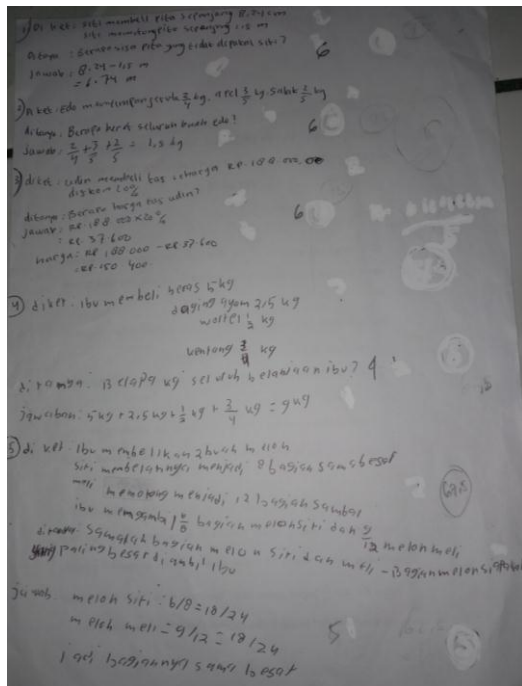 1) Di ket: siti membeli pita sepanjang 8.24 m
siti memotong pita sepanjang 1.5 m
Ditanya: Berapa sisa pita yang tidak dipakai siti?
Jawab: 8.24 - 1.5 m
= 6.74 m
6
2) Diket: Edo menyimpan jeruk 3/4 kg, apel 3/5 kg, salak 2/5 kg
ditanya: Berapa berat seluruh buah edo?
Jawab: 3/4 + 3/5 + 2/5 =
6
3) diket: Udin membeli tas seharga RP. 188.000.00
diskon 20%
ditanya: Berapa harga tas udin?
Jawab: RP. 188.000 x 20%
= RP. 37.600
Harga: RP 188 000 - RP 37.600
= RP. 150 400
6
4) diket. ibu membeli beras 5 kg
daging ayam 2,5 kg
woltel 1/2 kg
kentang kg
ditanya. Berapa kg seluruh belanjaan ibu? 4
jawaban: 5 kg + 2,5 kg + 1/2 kg + 3/4 kg = 9 kg
5) di ket. Ibu membelikan 2 buah melon
siti membelahnya menjadi 8 bagian sama besar
meli memotong menjadi 12 bagian
ibu mengambil 6/8 bagian melon siti dan 9/12 melon meli
samakah bagian melon siti dan meli - Bagian melon
paling besar diambil ibu
jawab melon siti = 6/8 = 18/24
melon meli = 9/12 = 18/24
jadi bagiannya sama besar
5